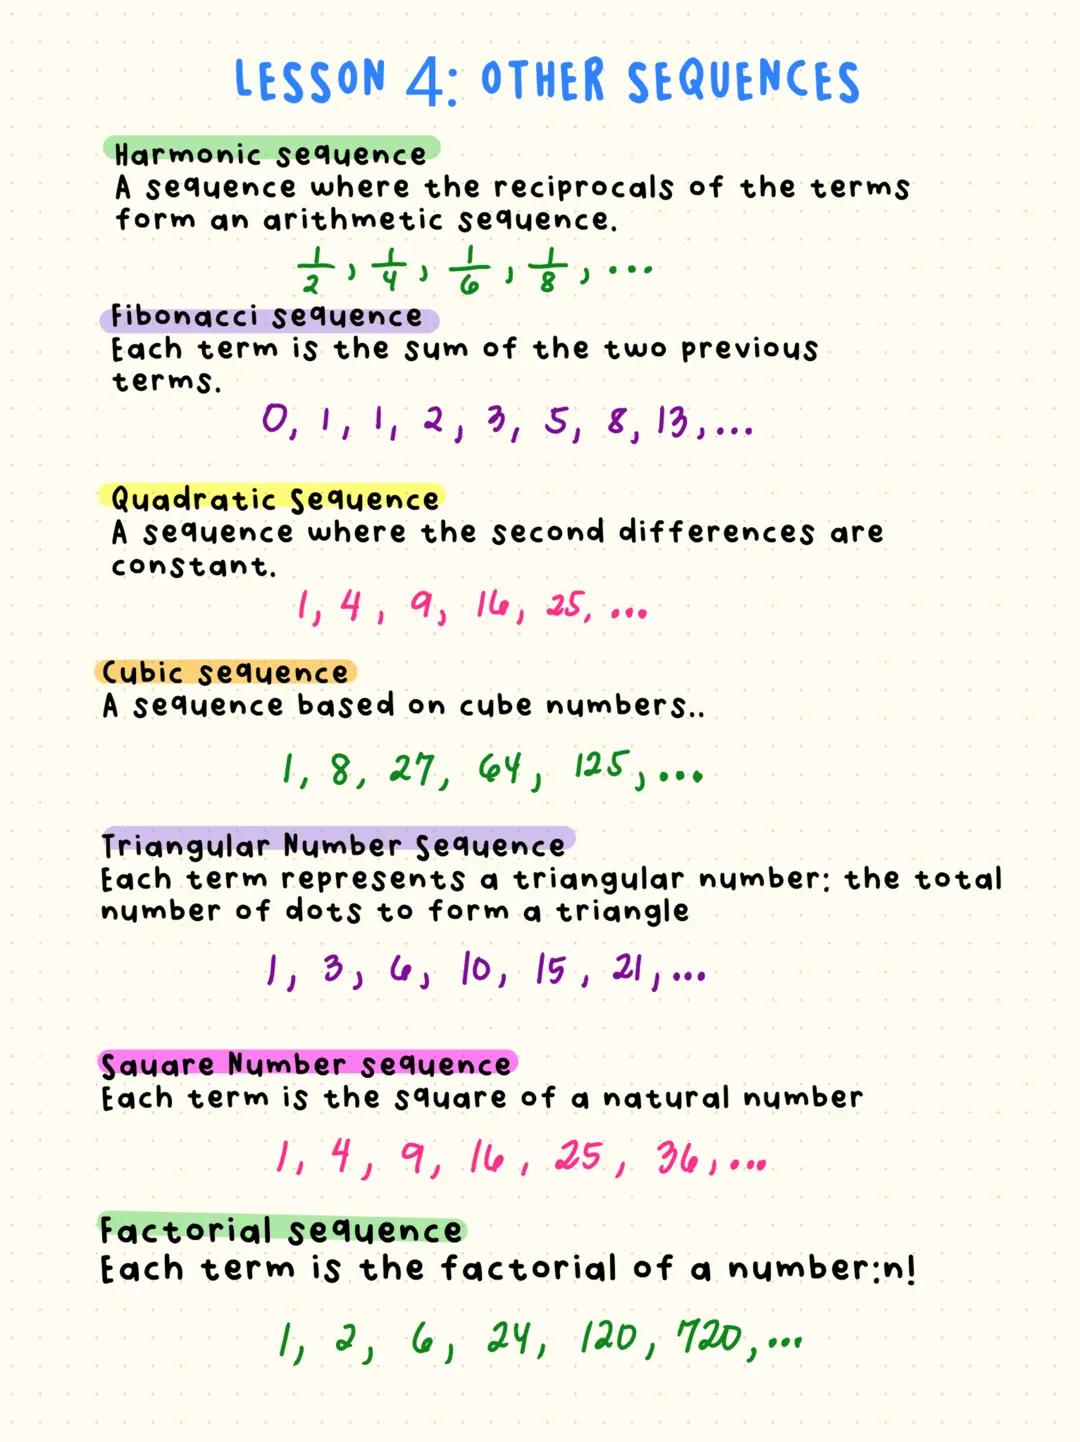 LESSON 4: OTHER SEQUENCES
Harmonic sequence
A sequence where the reciprocals of the terms
form an arithmetic sequence.
1/2, 1/4, 1/6, 1/8, ...
Fibonacci sequence
Each term is the sum of the two previous
terms.
0, 1, 1, 2, 3, 5, 8, 13, ...
Quadratic Sequence
A sequence where the second differences are
constant.
1, 4, 9, 16, 25, ...
Cubic sequence
A sequence based on cube numbers..
1, 8, 27, 64, 125, ...
Triangular Number Sequence
Each term represents a triangular number: the total
number of dots to form a triangle
1, 3, 6, 10, 15, 21, ...
Square Number sequence
Each term is the square of a natural number
1, 4, 9, 16, 25, 36, ...
Factorial sequence
Each term is the factorial of a number:n!
1, 2, 6, 24, 120, 720, ...